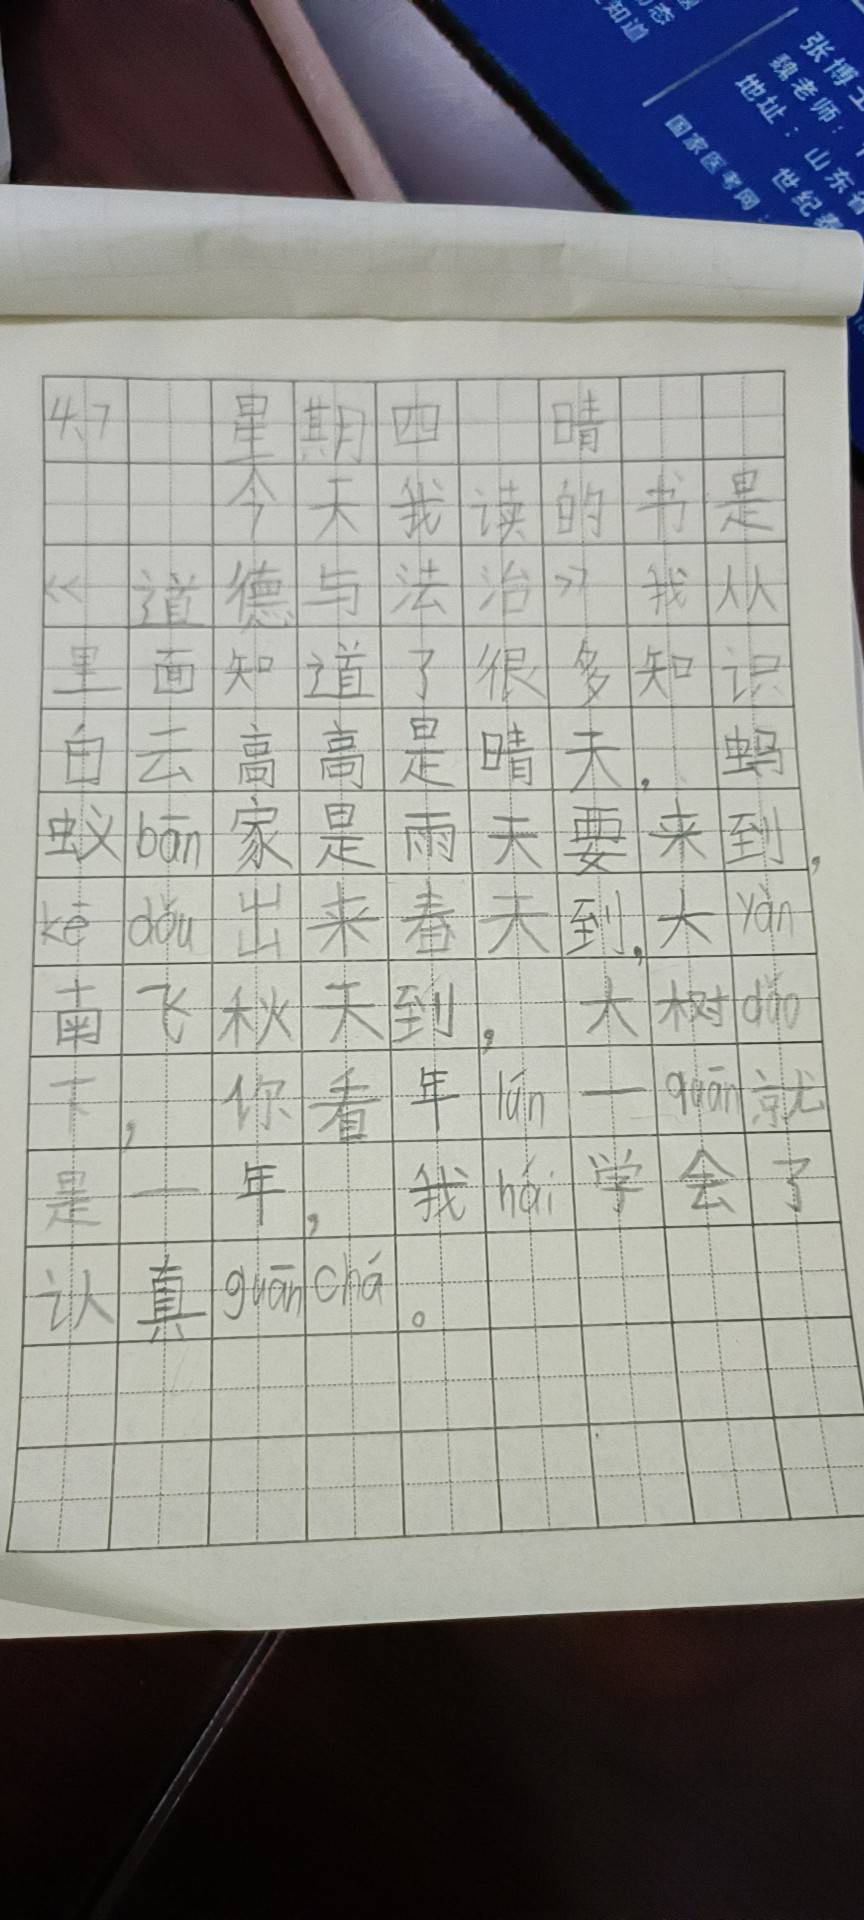 知道
张博士
魏老师:
地址:山东省
世纪泰
国家医考网:
4.7 星期四 晴
今天我读的书是
《道德与法治》我从
里面知道了很多知识
白云高高是晴天,蚂
蚁bān家是雨天要来到,
kē dǒu出来春天到,大yàn
南飞秋天到,大树dǎo
下,你看年lún一quān就
是一年,我hái学会了
认真guān chá。